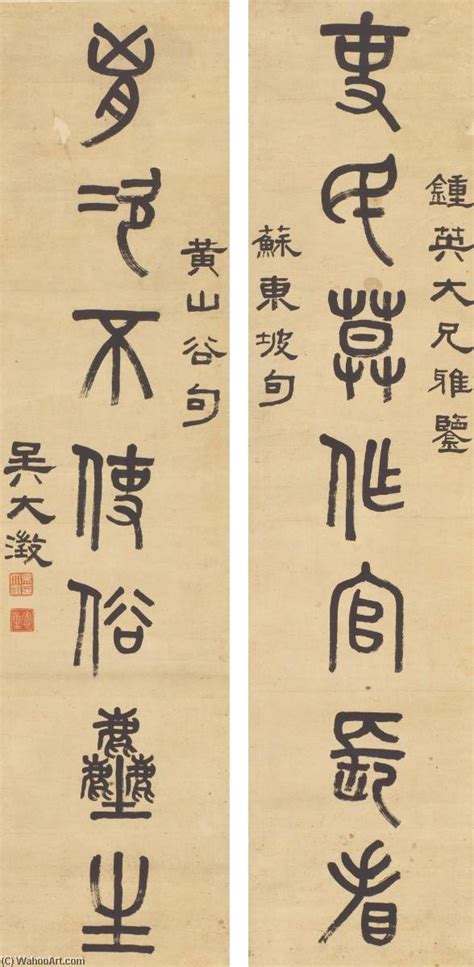 鍾英大兄雅鑒
吏民莫作官長看
蘇東坡句
黃山谷句
胷次不使俗塵生
吳大澂
(C) WahooArt.com